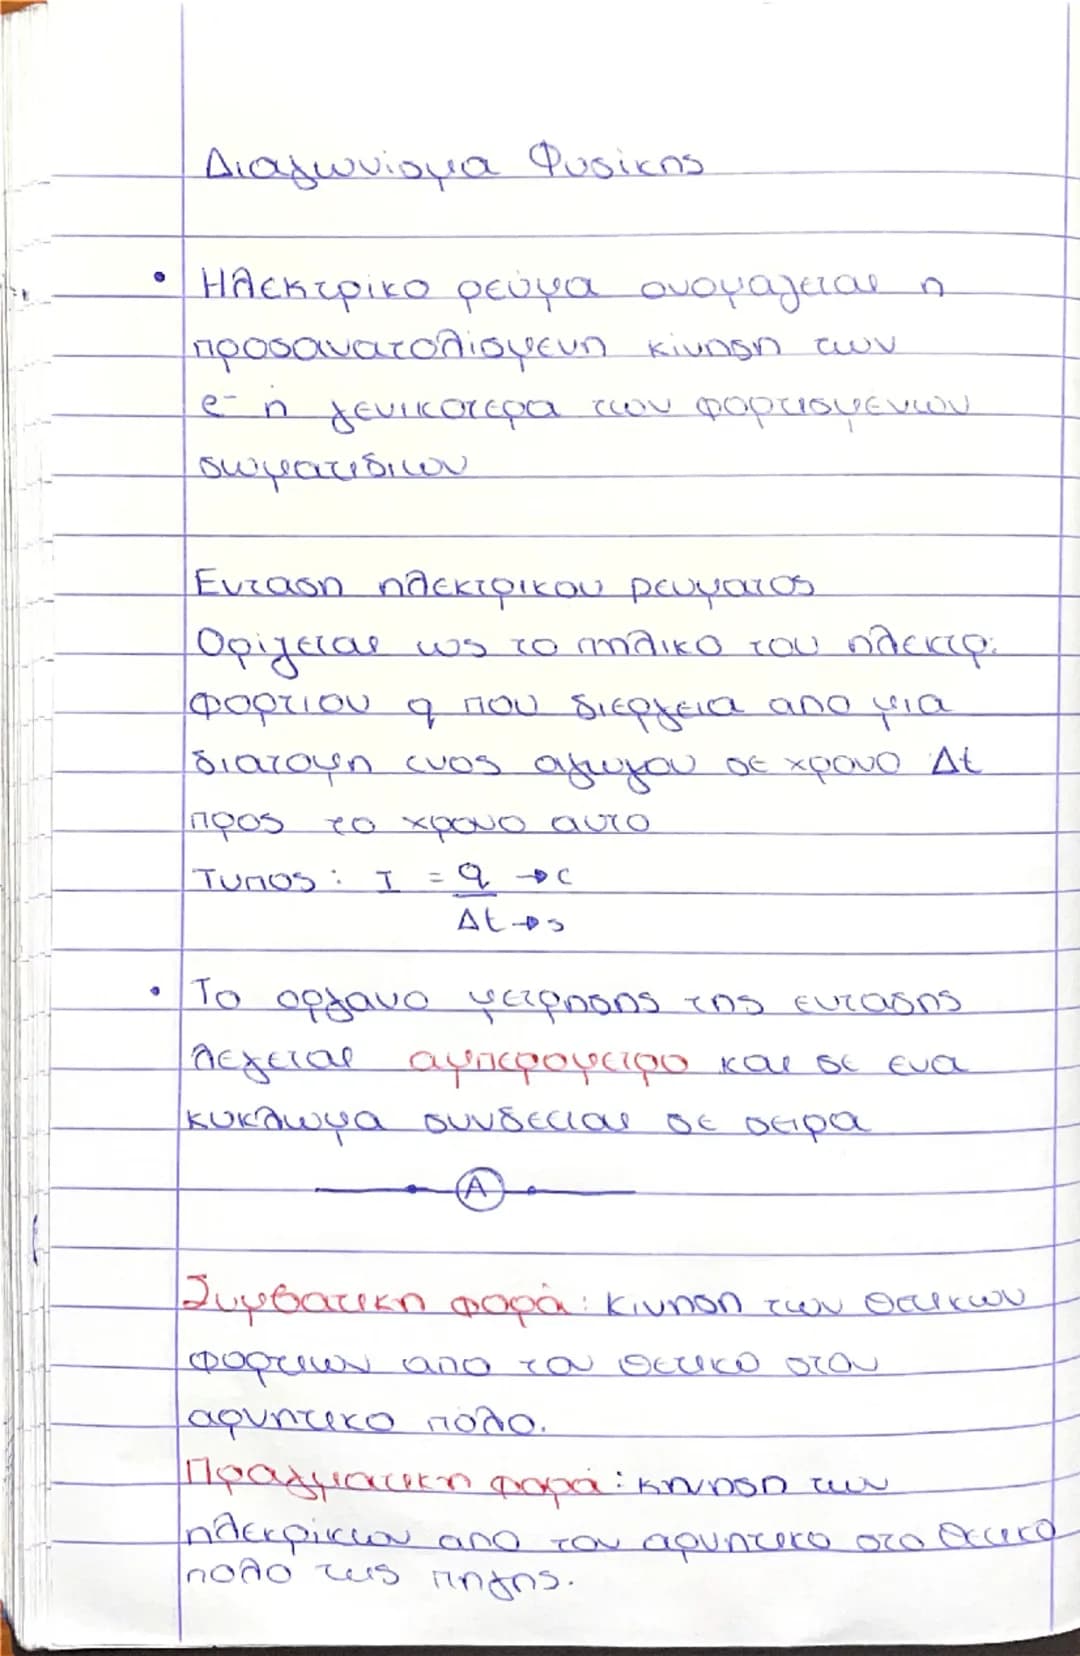 Διαγωνισμα Φυσικης
• Ηλεκτρικο ρεύμα ονομαζεται η
προσανατολισμενη κίνηση των
e⁻ ή γενικοτερα των φορτισμενων
σωματιδιων
Ενταση ηλεκτρικου ρευματος
Οριζεται ως το πηλικο του ηλεκτρ.
φορτιου q που διερχεια απο μια
διατομη ενος αγωγου σε χρονο Δt
προς το χρονο αυτο
Τυπος: I = q → C
Δt → s
• Το οργανο μετρησης της εντασης
λεγεται αμπερομετρο και σε ενα
κυκλωμα συνδεεται σε σειρα
A
Συμβατικη φορά: κινηση των θετικων
φορτιων απο το θετικο στον
αρνητικο πολο.
Πραγματικη φορά: κινηση των
ηλεκρικων απο τον αρνητικο στο θετικο
πολο της πηγης.